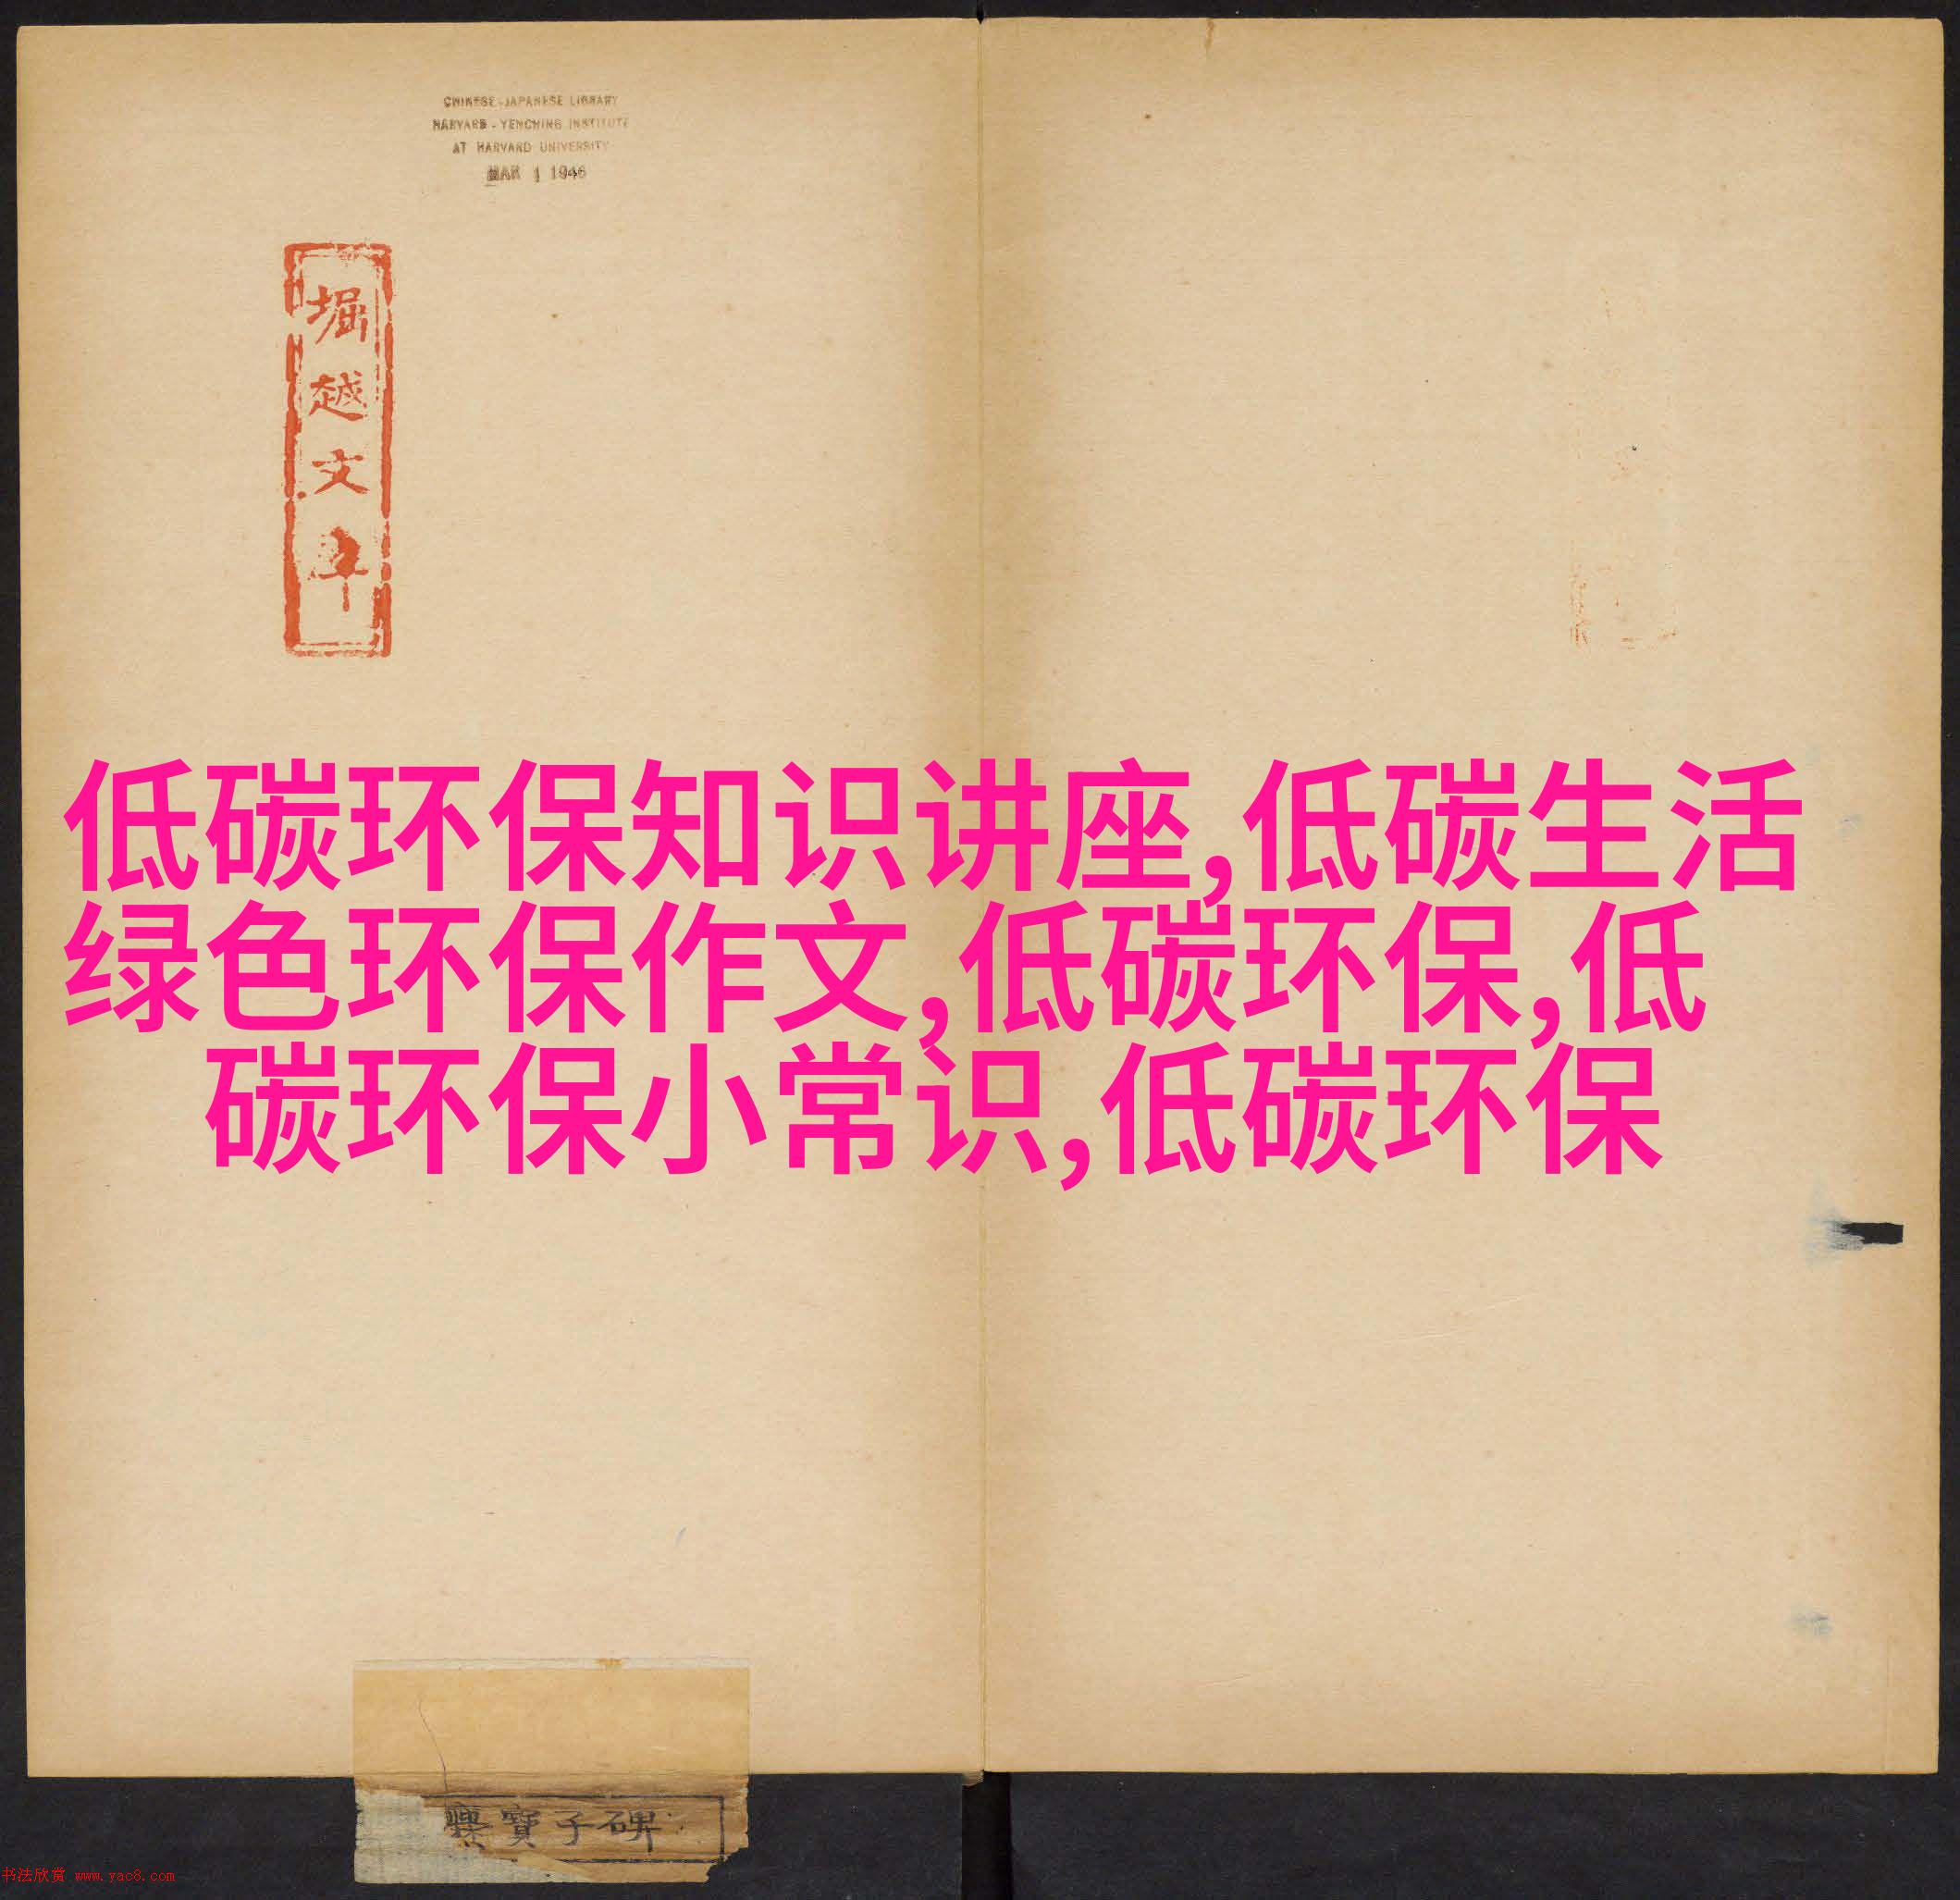 CHINESE-JAPANESE LIBRARY
HARVARD-YENCHING INSTITUTE
AT HARVARD UNIVERSITY
MAR 1 1946
堀越文庫
低碳环保知识讲座,低碳生活
绿色环保作文,低碳环保,低
碳环保小常识,低碳环保
爨寶子碑
书法欣赏 www.yac8.com